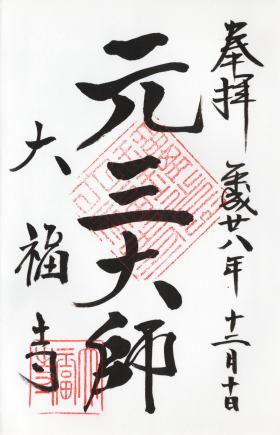 奉拝
平成廿八年 十二月十日
元三大師
大福寺